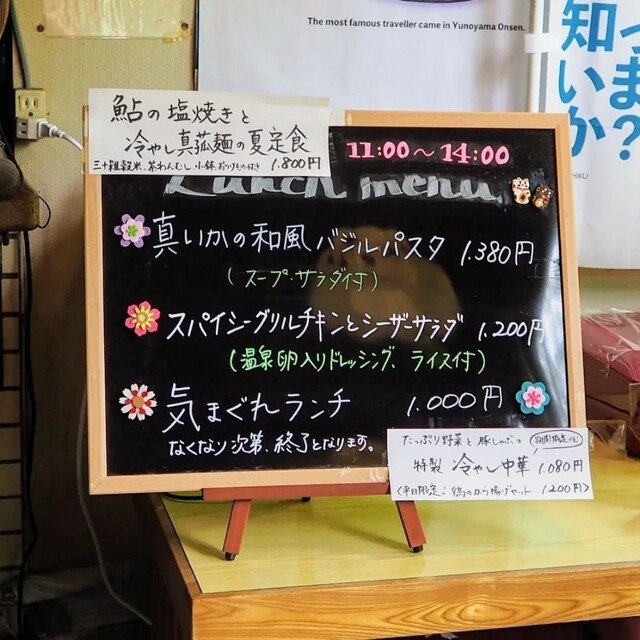 The most famous traveller came in Yunoyama Onsen.
知いか
っま?
鮎の塩焼きと
冷やし真菰麺の夏定食
三十雑穀米、茶わんむし、小鉢、おつけもの付き 1.800円
11:00～14:00
Lunch menu
真いかの和風バジルパスタ 1.380円
(スープ・サラダ付)
スパイシーグリルチキンとシーザーサラダ 1.200円
(温泉卵入りドレッシング、ライス付)
気まぐれランチ 1.000円
なくなり次第、終了となります。
たっぷり野菜と豚しゃぶの
特製 冷やし中華 1.080円
〈平日限定: 鶏のから揚げセット 1.200円〉